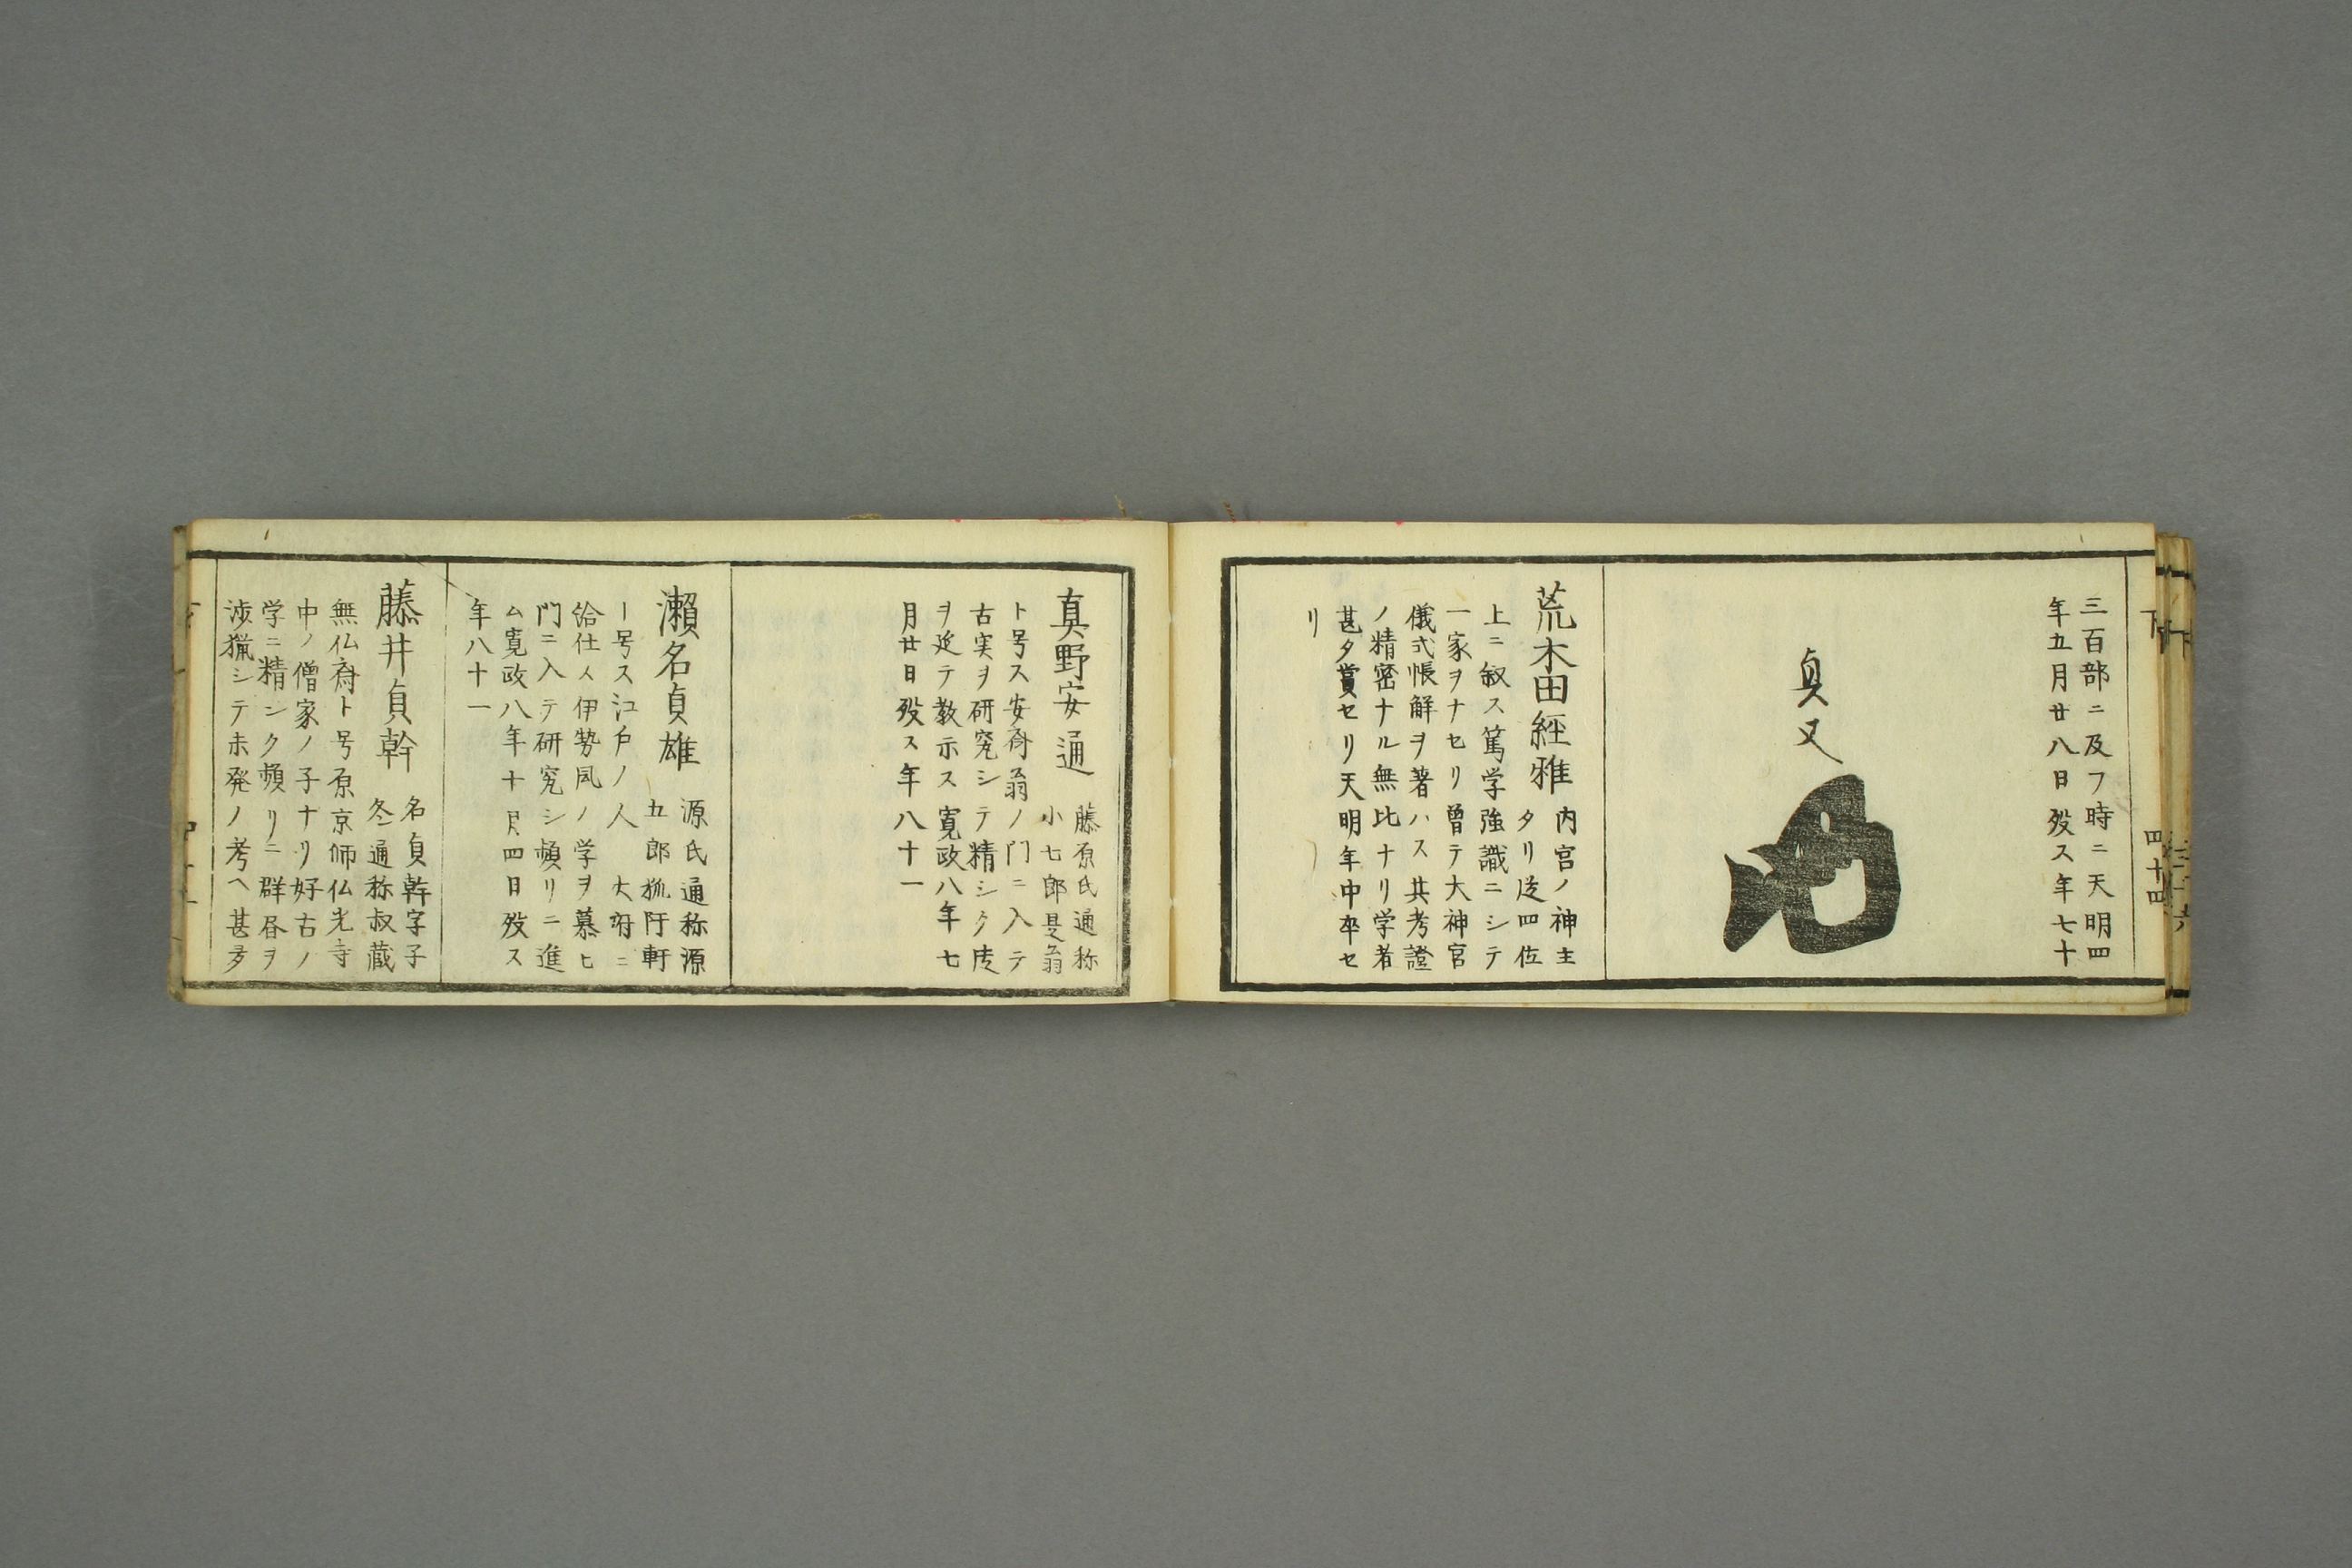 下
四十四
三百部ニ及フ時ニ天明四
年五月廿八日歿ス年七十
貞丈
荒木田經雅
内宮ノ神主
タリ从四位
上ニ叙ス篤学強識ニシテ
一家ヲナセリ曽テ大神宮
儀式帳解ヲ著ハス其考證
ノ精密ナル無比ナリ学者
甚タ賞セリ天明年中卒セ
リ
真野安通
藤原氏通称
小七郎是翁
ト号ス安斎翁ノ門ニ入テ
古実ヲ研究シテ精シク序
ヲ延テ教示ス寛政八年七
月廿日歿ス年八十一
瀬名貞雄
源氏通称源
五郎狐阡軒
ト号ス江戸ノ人大府ニ
給仕メ伊勢風ノ学ヲ慕ヒ
門ニ入テ研究シ頻リニ進
ム寛政八年十月四日歿ス
年八十一
藤井貞幹
名貞幹字子
冬通称叔蔵
無仏斎ト号原京師仏光寺
中ノ僧家ノ子ナリ好古ノ
学ニ精シク頻リニ群昏ヲ
渉猟シテ未発ノ考ヘ甚多